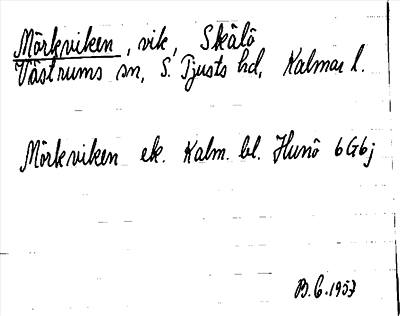 Mörkviken, vik, Skälö
Västrums sn, S. Tjusts hd, Kalmar l.
Mörkviken ek. Kalm. bl. Hunö 6G6j
B.G. 1957